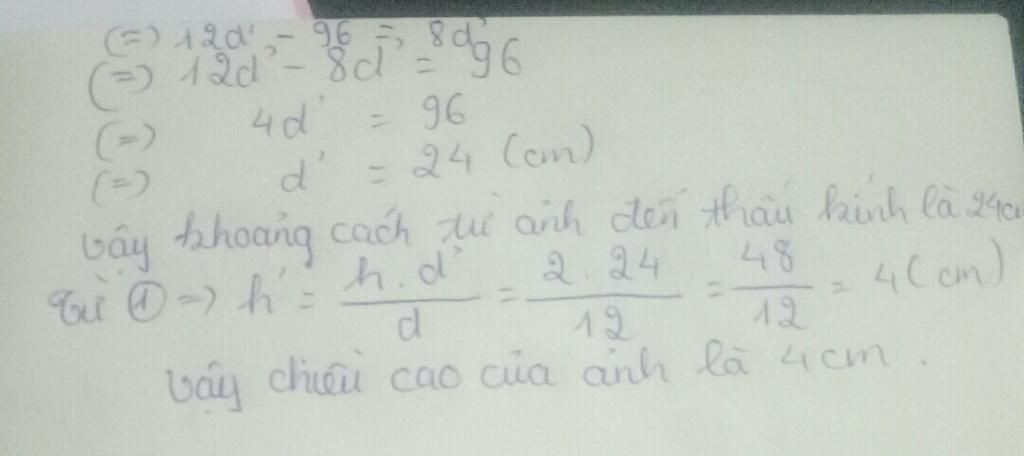 (=) 12d' - 96 = 8d'
(=) 12d' - 8d' = 96
(=) 4d' = 96
(=) d' = 24 (cm)
Vậy khoảng cách từ ảnh đến thấu kính là 24cm
Từ ① => h' = h.d' / d = 2.24 / 12 = 48 / 12 = 4 (cm)
Vậy chiều cao của ảnh là 4cm.